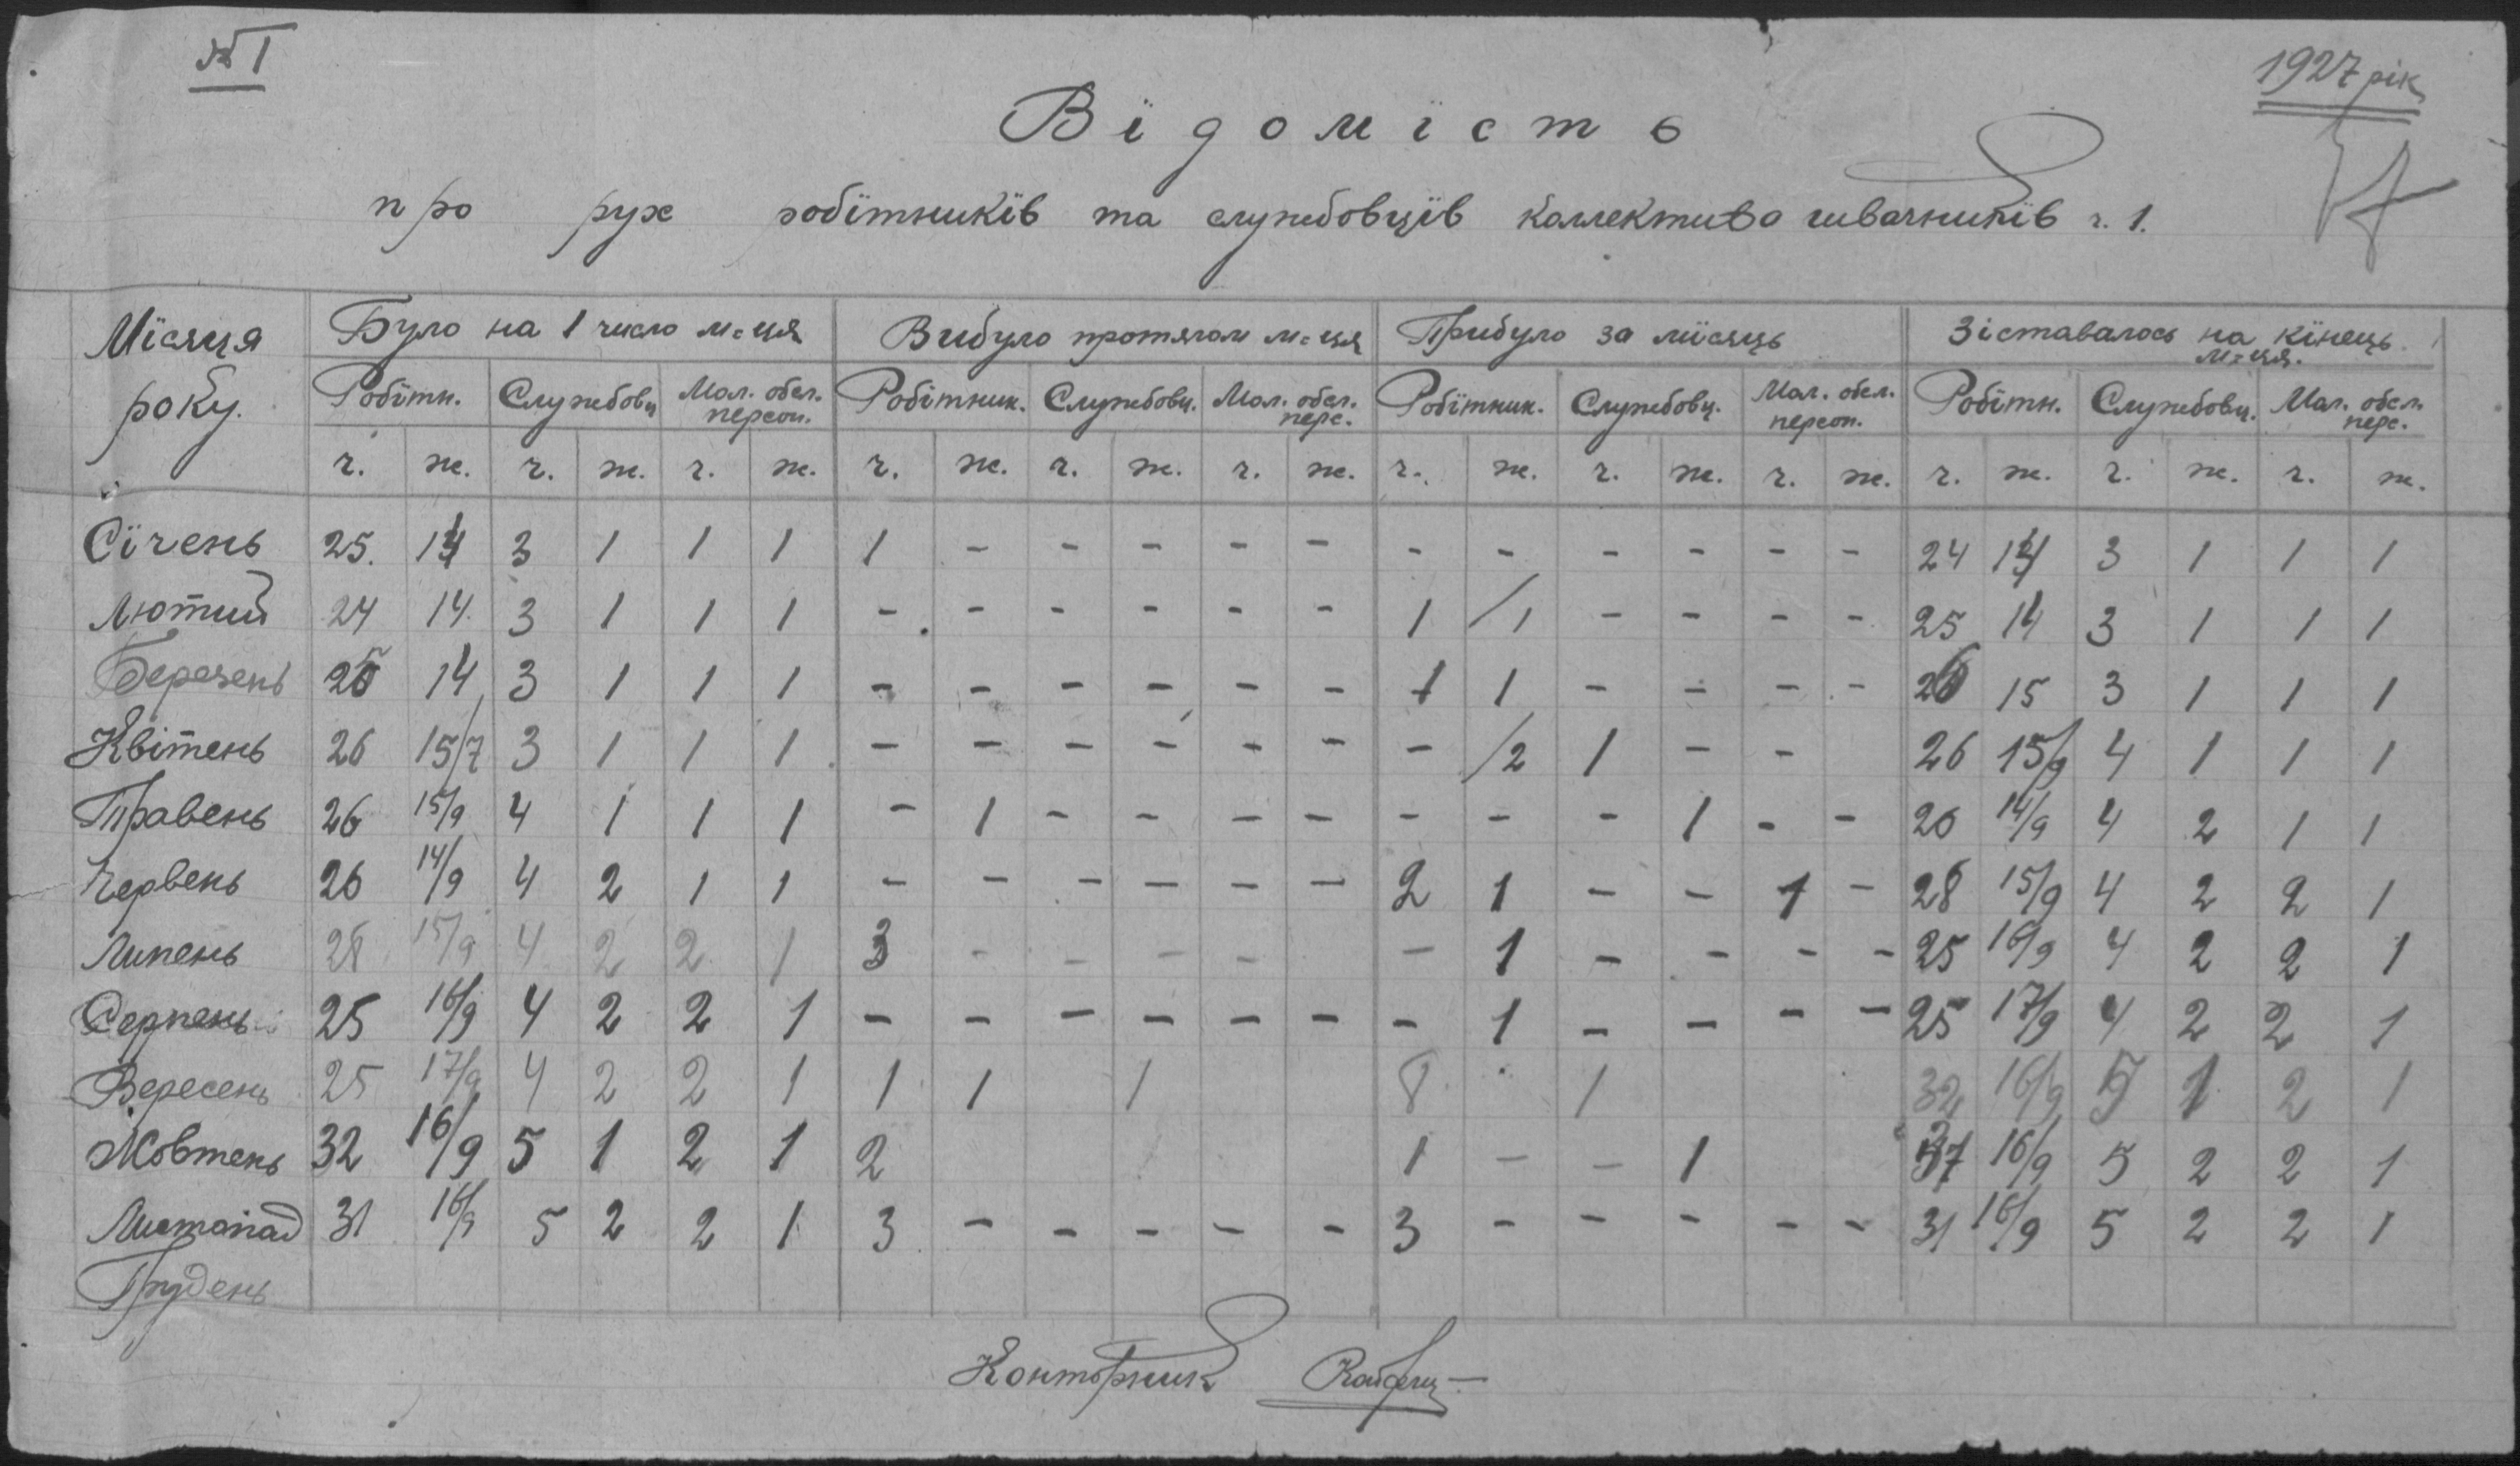 № 1
1927 рік
Вїдомїсть
про рух робїтникїв та службовцїв коллектива швачникїв ч. 1.
Мїсяця року.
Було на 1 число м-ця Вибуло протягом м-ця Прибуло за мїсяць Зіставалось на кїнець м-ця.
Робїтн. Службовц Мол. обсл. персон. Робїтник. Службовц. Мол. обсл. перс. Робїтник. Службовц. Мол. обсл. персон. Робїтн. Службовц. Мол. обсл. перс.
ч. ж. ч. ж. ч. ж. ч. ж. ч. ж. ч. ж. ч. ж. ч. ж. ч. ж. ч. ж. ч. ж. ч. ж.
Сїчень 25. 14 3 1 1 1 1 - - - - - - - - - - - 24 14 3 1 1 1
Лютий 24 14 3 1 1 1 - - - - - - 1 /1 - - - - 25 14 3 1 1 1
Березень 25 14 3 1 1 1 - - - - - - 1 1 - - - - 26 15 3 1 1 1
Квітень 26 15/7 3 1 1 1 - - - - - - - /2 1 - - 26 15/9 4 1 1 1
Травень 26 15/9 4 1 1 1 - 1 - - - - - - - 1 - - 26 14/9 4 2 1 1
Червень 26 14/9 4 2 1 1 - - - - - - 2 1 - - 1 - 28 15/9 4 2 2 1
Липень 28 15/9 4 2 2 1 3 - - - - - 1 - - - - 25 16/9 4 2 2 1
Серпень 25 16/9 4 2 2 1 - - - - - - - 1 - - - - 25 17/9 4 2 2 1
Вересень 25 17/9 4 2 2 1 1 1 1 8 1 32 16/9 5 1 2 1
Жовтень 32 16/9 5 1 2 1 2 1 - - 1 16/9 5 2 2 1
Листопад 31 16/9 5 2 2 1 3 - - - - - 3 - - - - - 31 16/9 5 2 2 1
Грудень
Конторник